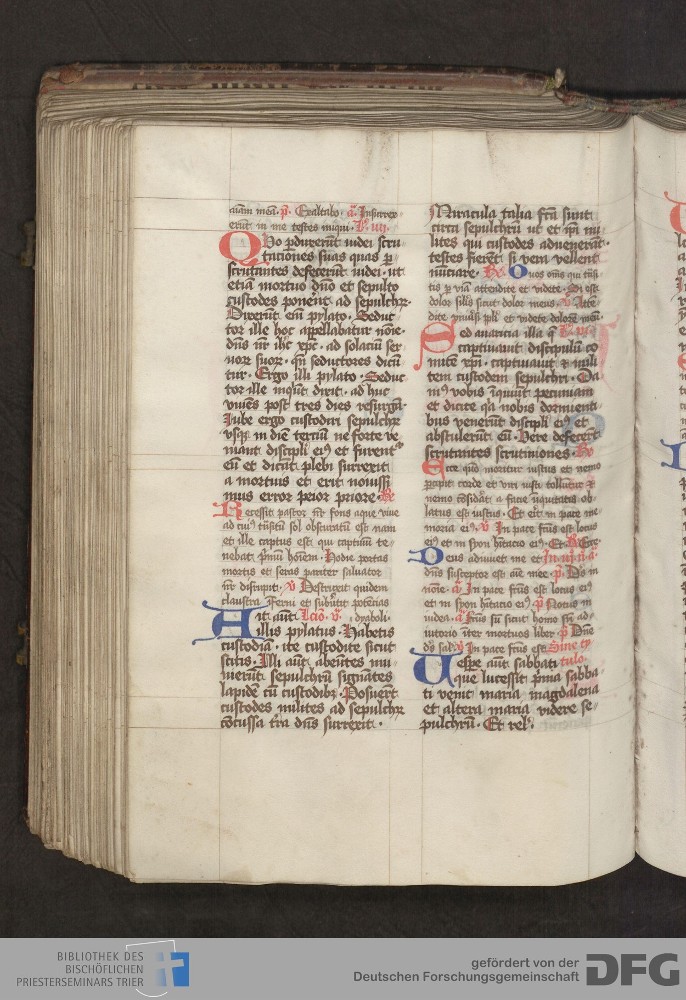 ciam meā. p̄. Exaltabo. aᷓ. Insurrex-
erūt in me testes iniqui. L̄. iiii.
Quo ꝑduxerūt iudei scru
tationes suas quas ꝑ
scrutantes defecerūt iudei. ut
etiā mortuo dn̄o et sepulto
custodes ponerēt ad sepulchꝝ.
Dixerūt eīn pylato. Seduc
tor ille hoc appellabatur nōīe
dn̄s nr̄ ih̄c xp̄c. ad solaciū ser
uoꝝ suoꝝ. qn̄ seductores dicū
tur. Ergo illi pylato. Seduc
tor ille inquit dixit. ad huc
viuēs post tres dies resurgā.
Jube ergo custodiri sepulchꝝ
vsqꝫ in diem terciū ne forte ve
niant discipl̄i eiꝰ et furent̄
eū et dicāt plebi surrexit
a mortuis et erit nouissi
mus error peior priore. R̄
Recessit pastor nr̄ fons aque viue
ad cuiꝰ tn̄sitū sol obscuratꝰ est nam
et ille captus est qui captiuū te-
nebat pͥmū hoīem. Hodie portas
mortis et seras pariter saluator
nr̄ disrupit. v̄ Destruxit quidem
claustra īferni et subūtit potēcias
Ait aūt lcīo. v. dyaboli.
illis pylatus. Habetis
custodiā. ite custodite sicut
scitis. Illi aūt abeūtes mu-
nierūt sepulchrū signātes
lapidē cū custodibꝫ. Posuerūt
custodes milites ad sepulchꝝ
cōcussa t̄ra dn̄s surrexit.
Miracula talia fc̄a sunt
circa sepulchrū ut et ip̄i mi
lites qui custodes aduenerāt.
testes fierēt si vera vellent
nūciare. R̄. O uos om̄s qui tn̄si
tis ꝑ viā attendite et videte. Si est
dolor sil̄is sicut dolor meus. v̄ Atten
dite vniusi pl̄i et videte dolorē meū.
Sed auaricia illa q̄ L̄. vi
captiuauit discipulū co
mitē xp̄i. captiuauit ⁊ mili
tem custodem sepulchri. Da
mꝰ vobis īquiūt pecuniam
et dicite qͥa nobis dormienti-
bus venerūt discipl̄i eiꝰ et
abstulerūt eū. Vere defecerūt
scrutantes scrutiniones. R̄
Ecce quō moritur iustus et nemo
ꝑcipit corde et viri iusti tollūtur ⁊
nemo cōsidat a facie iniquitatis ob-
latus est iustus. Et erit in pace me
moria eiꝰ. v̄ In pace fc̄us est locus
eiꝰ et in syon hītacio eiꝰ. Et R̄ Ecce.
Deus adiuuet me et
dn̄s susceptor est aīe mee. p̄. Ds̄ in
noīe. aᷓ In pace fc̄us est locus eiꝰ
et in syon hītacio eiꝰ p̄ Notus in
iudea. aᷓ Fc̄us sū sicut homo sn̄ ad-
iutorio int̄ mortuos liber. p̄ Dn̄e
ds̄ sal. v̄ In pace fc̄us est. Sine ty-
Vespe aūt sabbati tulo.
que lucessit pͥma sabba-
ti venit maria magdalena
et altera maria videre se-
pulchrū. Et rel̄.
BIBLIOTHEK DES
BISCHÖFLICHEN
PRIESTERSEMINARS TRIER
gefördert von der
Deutschen Forschungsgemeinschaft
DFG